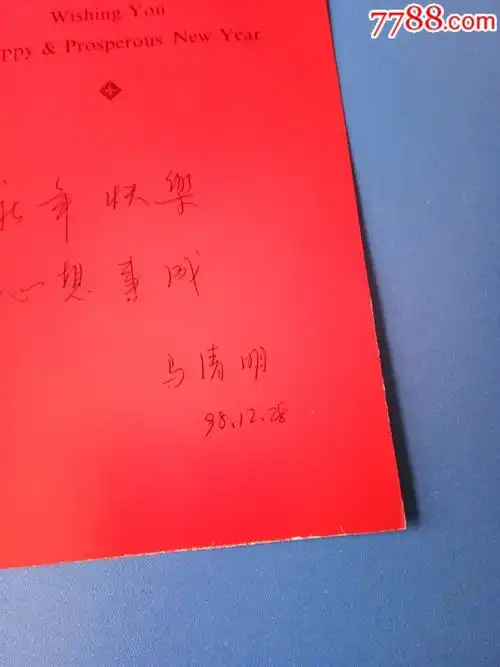 7788.com
Wishing You
ppy & Prosperous New Year
新年快樂
心想事成
马清明
98.12.28